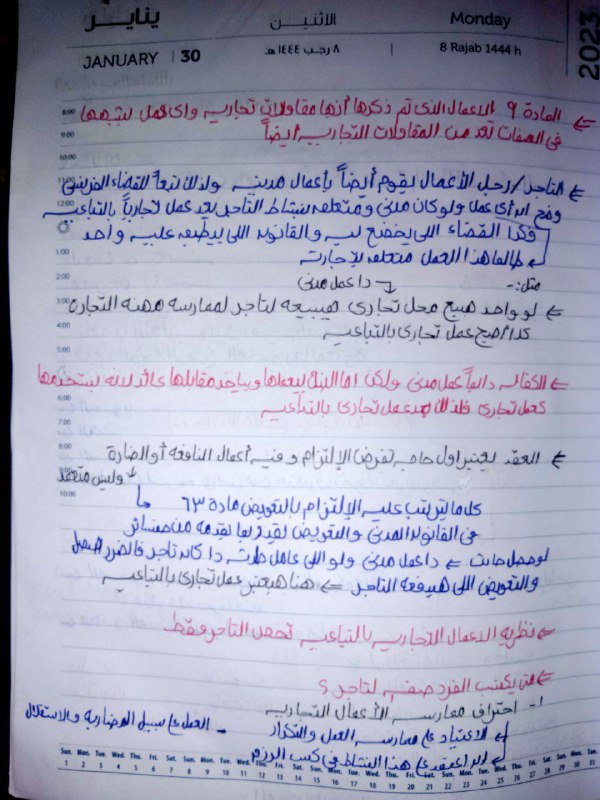 2023
يناير
الاثنين
Monday
JANUARY 30
٨ رجب ١٤٤٤ هـ
8 Rajab 1444 h
المادة ٩ الاعمال التى تم ذكرها أنها مقاولات تجاريه واى عمل يشبهها
فى الصفات تعد من المقاولات التجاريه أيضاً
التاجر / رجل الأعمال يقوم أيضاً بأعمال مدنيه ولذلك تبعاً للقضاء الفرنسى
وضح ان أى عمل ولو كان مدنى ومتعلقه بنشاط التاجر يعد عمل تجارياً بالتبايعيه
فكدا القضاء اللى يخضع ليه والقانون اللى بيطبق عليه واحد
طالما هذا العمل متعلقه بتجارته
مثل :-
دا عمل مدنى
لو واحد هيبيع محل تجارى هيبيعه لتاجر لممارسه مهنه التجارة
كدا أصبح عمل تجارى بالتباعيه
الكفاله دائماً عمل مدنى ولكن اما البنك بيعملها وبياخد مقابلها عائد لانه بيستخدمها
كعمل تجارى فلذلك يعد عمل تجارى بالتباعيه
العقد يعتبر اول حاجه تفرض الإلتزام وفيه أعمال النافعه أو الضارة
وليس متعمد
كل ما يترتب عليه الإلتزام بالتعويض مادة ٦٣
فى القانون المدنى والتعويض بقدر ما يقدمه من خسائر
لو حصل حادث دا عمل مدنى ولو اللى عامل حادثه دا كان تاجر فالضرر الحصل
والتعويض اللى هيدفعه التاجر هنا هيعتبر عمل تجارى بالتباعيه
نظرية الاعمال التجاريه بالتباعيه تخص التاجر فقط
من يكتسب الفرد صفه لتاجر ؟
١- احتراف ممارسه الأعمال التجاريه
الاعتياد على ممارسه العمل والتكرار
- العمل على سبيل المضاربه والاستقلال
أن اعتمد على هذا النشاط فى كسب الرزق
8:00
9:00
10:00
11:00
12:00
1:00
2:00
3:00
4:00
5:00
6:00
7:00
8:00
9:00
10:00
Sun. Mon. Tue. Wed. Thu. Fri. Sat. Sun. Mon. Tue. Wed. Thu. Fri. Sat. Sun. Mon. Tue. Wed. Thu. Fri. Sat. Sun. Mon. Tue. Wed. Thu. Fri. Sat. Sun. Mon. Tue.
1 2 3 4 5 6 7 8 9 10 11 12 13 14 15 16 17 18 19 20 21 22 23 24 25 26 27 28 29 30 31